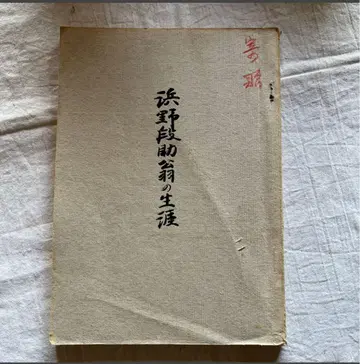 寄贈
浜野段助翁の生涯